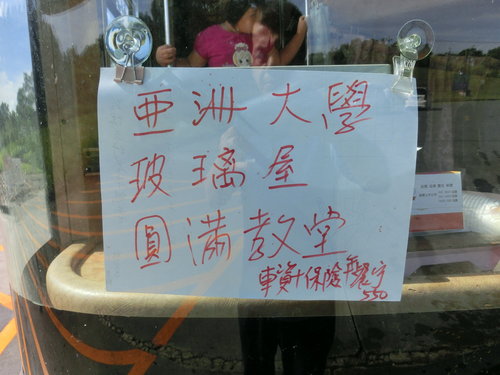 亞洲大學
玻璃屋
圓滿教堂
車資+保險
550